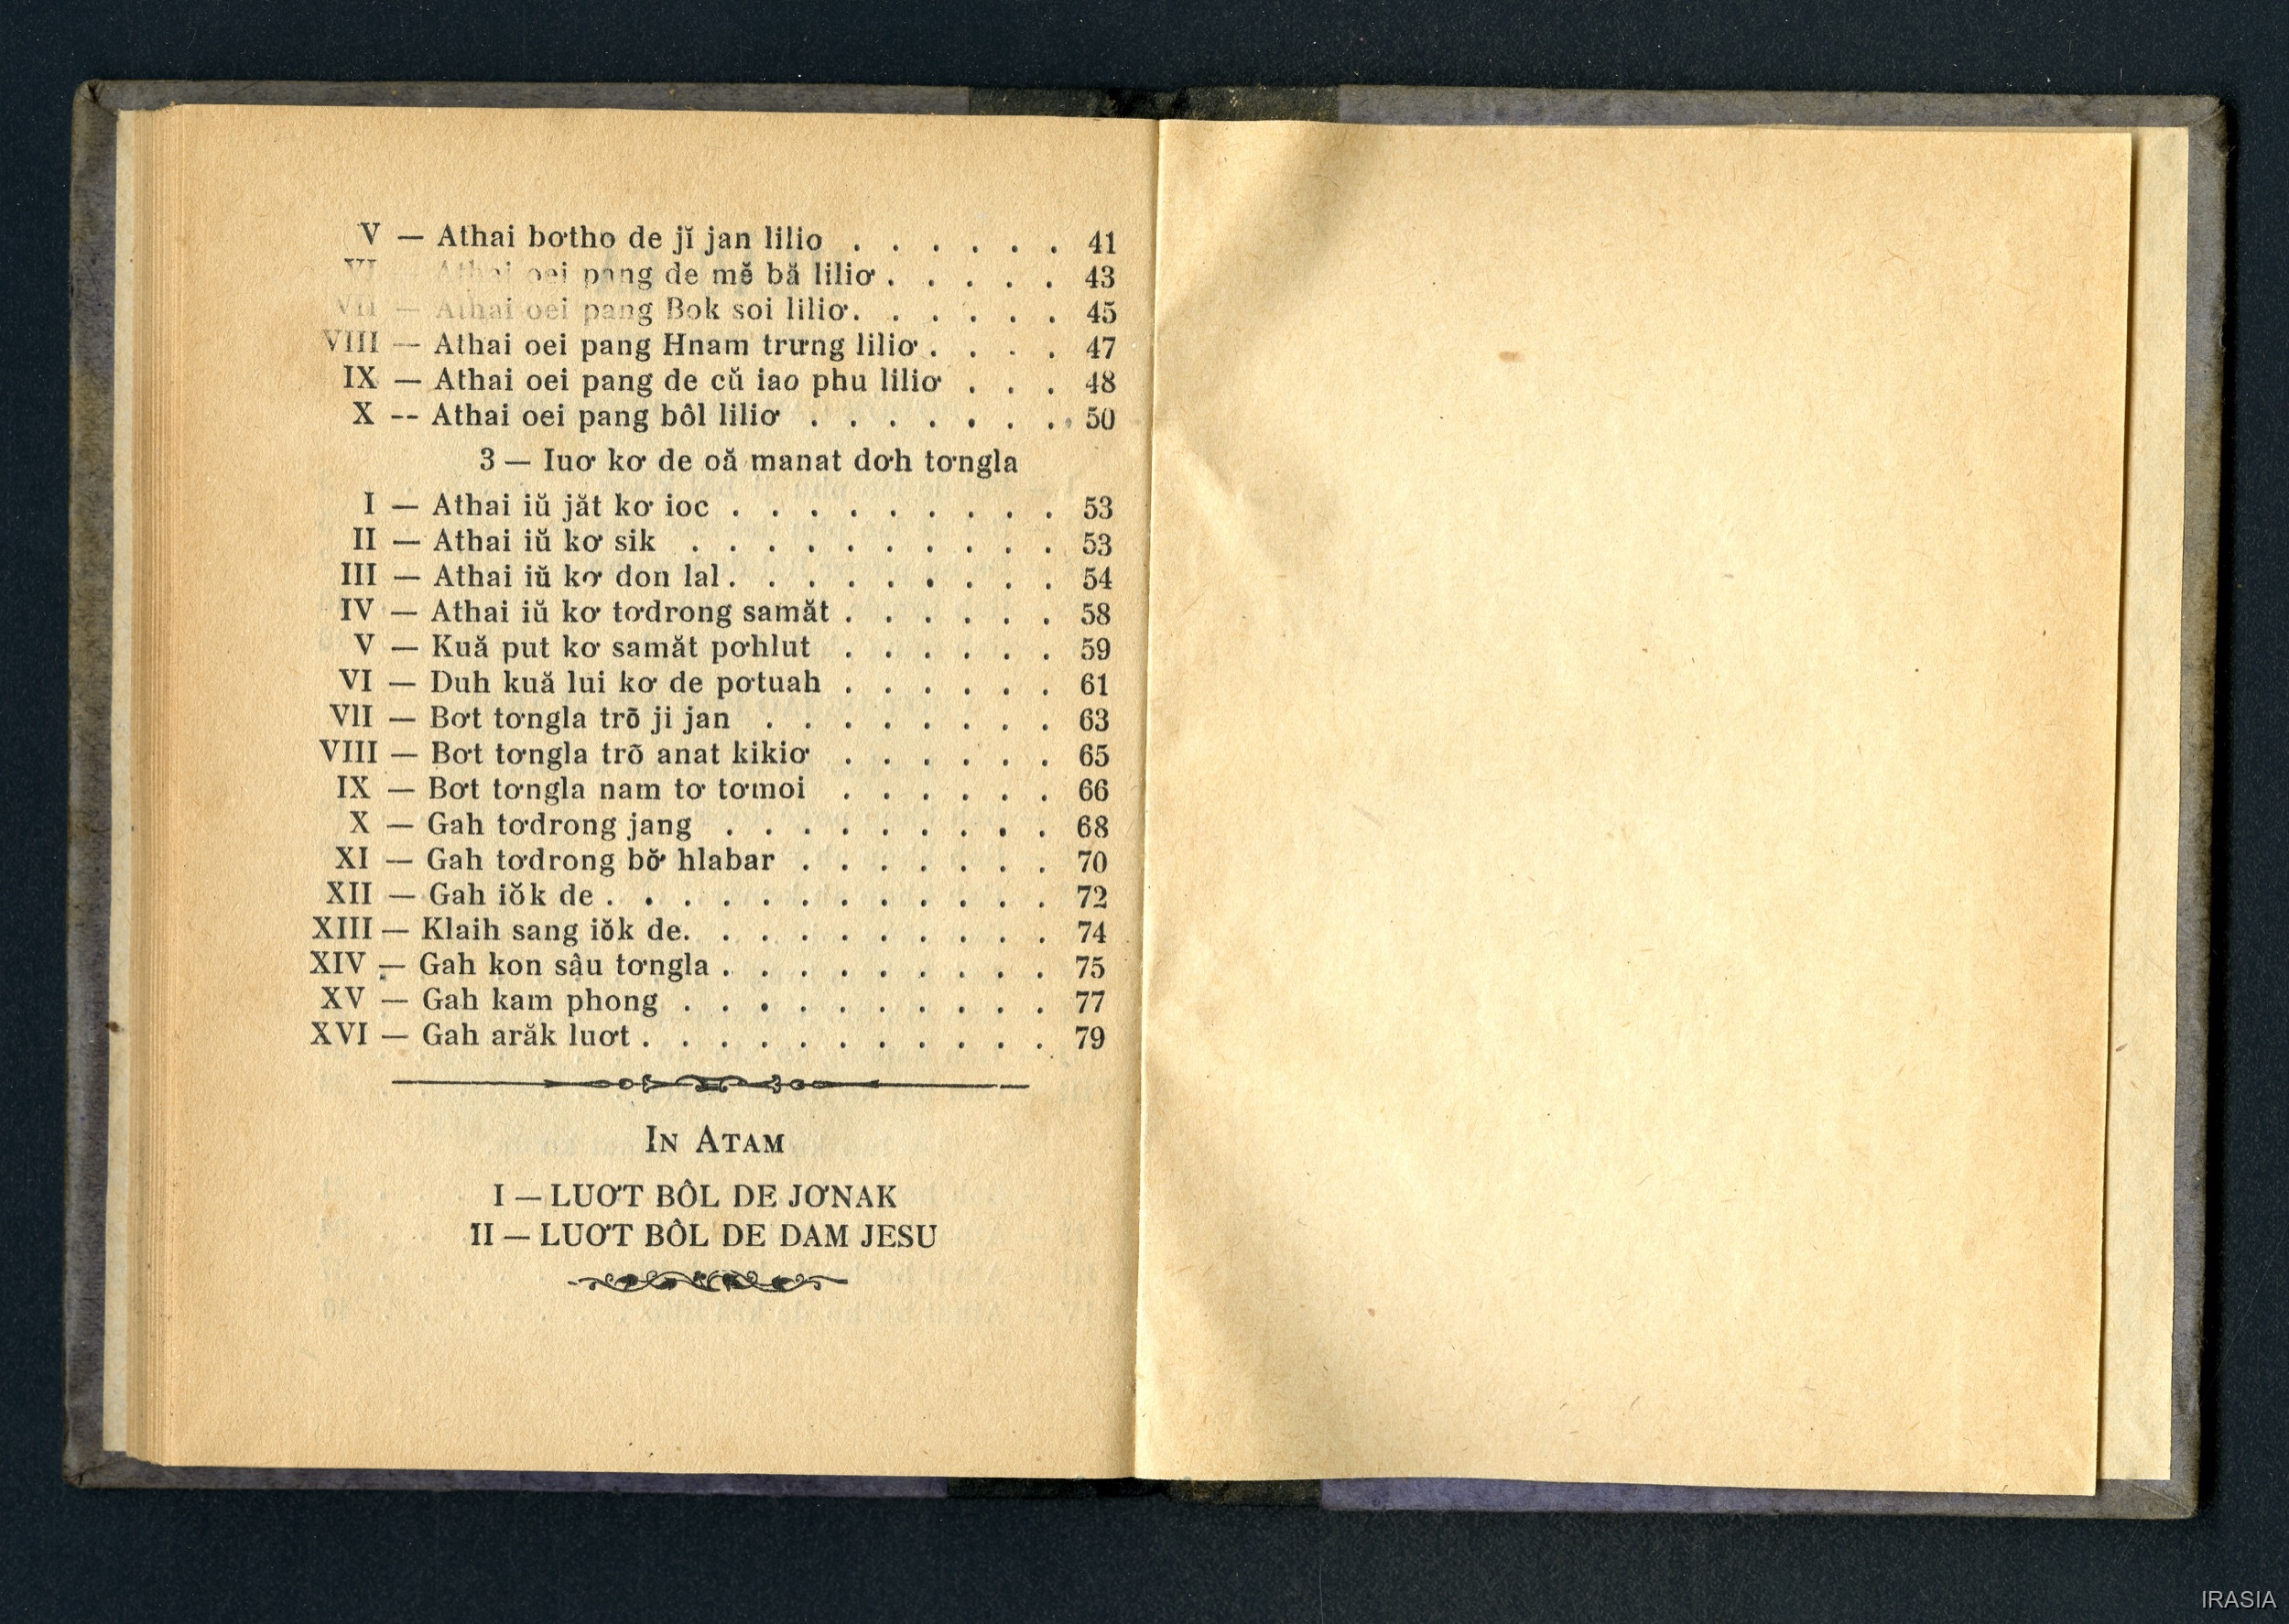 V — Athai bơtho de jĭ jan lilio . . . . . . 41
VI — Athai oei pang de mĕ bă liliơ . . . . . 43
VII — Athai oei pang Bok soi liliơ. . . . . . 45
VIII — Athai oei pang Hnam trưng liliơ . . . . 47
IX — Athai oei pang de cŭ iao phu liliơ . . . 48
X -- Athai oei pang bôl liliơ . . . . . . . 50
3 — Iuơ kơ de oă manat dơh tơngla
I — Athai iŭ jăt kơ ioc . . . . . . . . . 53
II — Athai iŭ kơ sik . . . . . . . . . . 53
III — Athai iŭ kơ don lal . . . . . . . . . 54
IV — Athai iŭ kơ tơdrong samăt . . . . . . 58
V — Kuă put kơ samăt pơhlut . . . . . . 59
VI — Duh kuă lui kơ de pơtuah . . . . . . 61
VII — Bơt tơngla trŏ ji jan . . . . . . . . 63
VIII — Bơt tơngla trŏ anat kikiơ . . . . . . 65
IX — Bơt tơngla nam tơ tơmoi . . . . . . 66
X — Gah tơdrong jang . . . . . . . . . 68
XI — Gah tơdrong bơ̆ hlabar . . . . . . . 70
XII — Gah iŏk de . . . . . . . . . . . . 72
XIII — Klaih sang iŏk de. . . . . . . . . . 74
XIV — Gah kon sâu tơngla . . . . . . . . . 75
XV — Gah kam phong . . . . . . . . . . 77
XVI — Gah arăk luơt . . . . . . . . . . . 79
IN ATAM
I — LUƠT BÔL DE JƠNAK
II — LUƠT BÔL DE DAM JESU
IRASIA